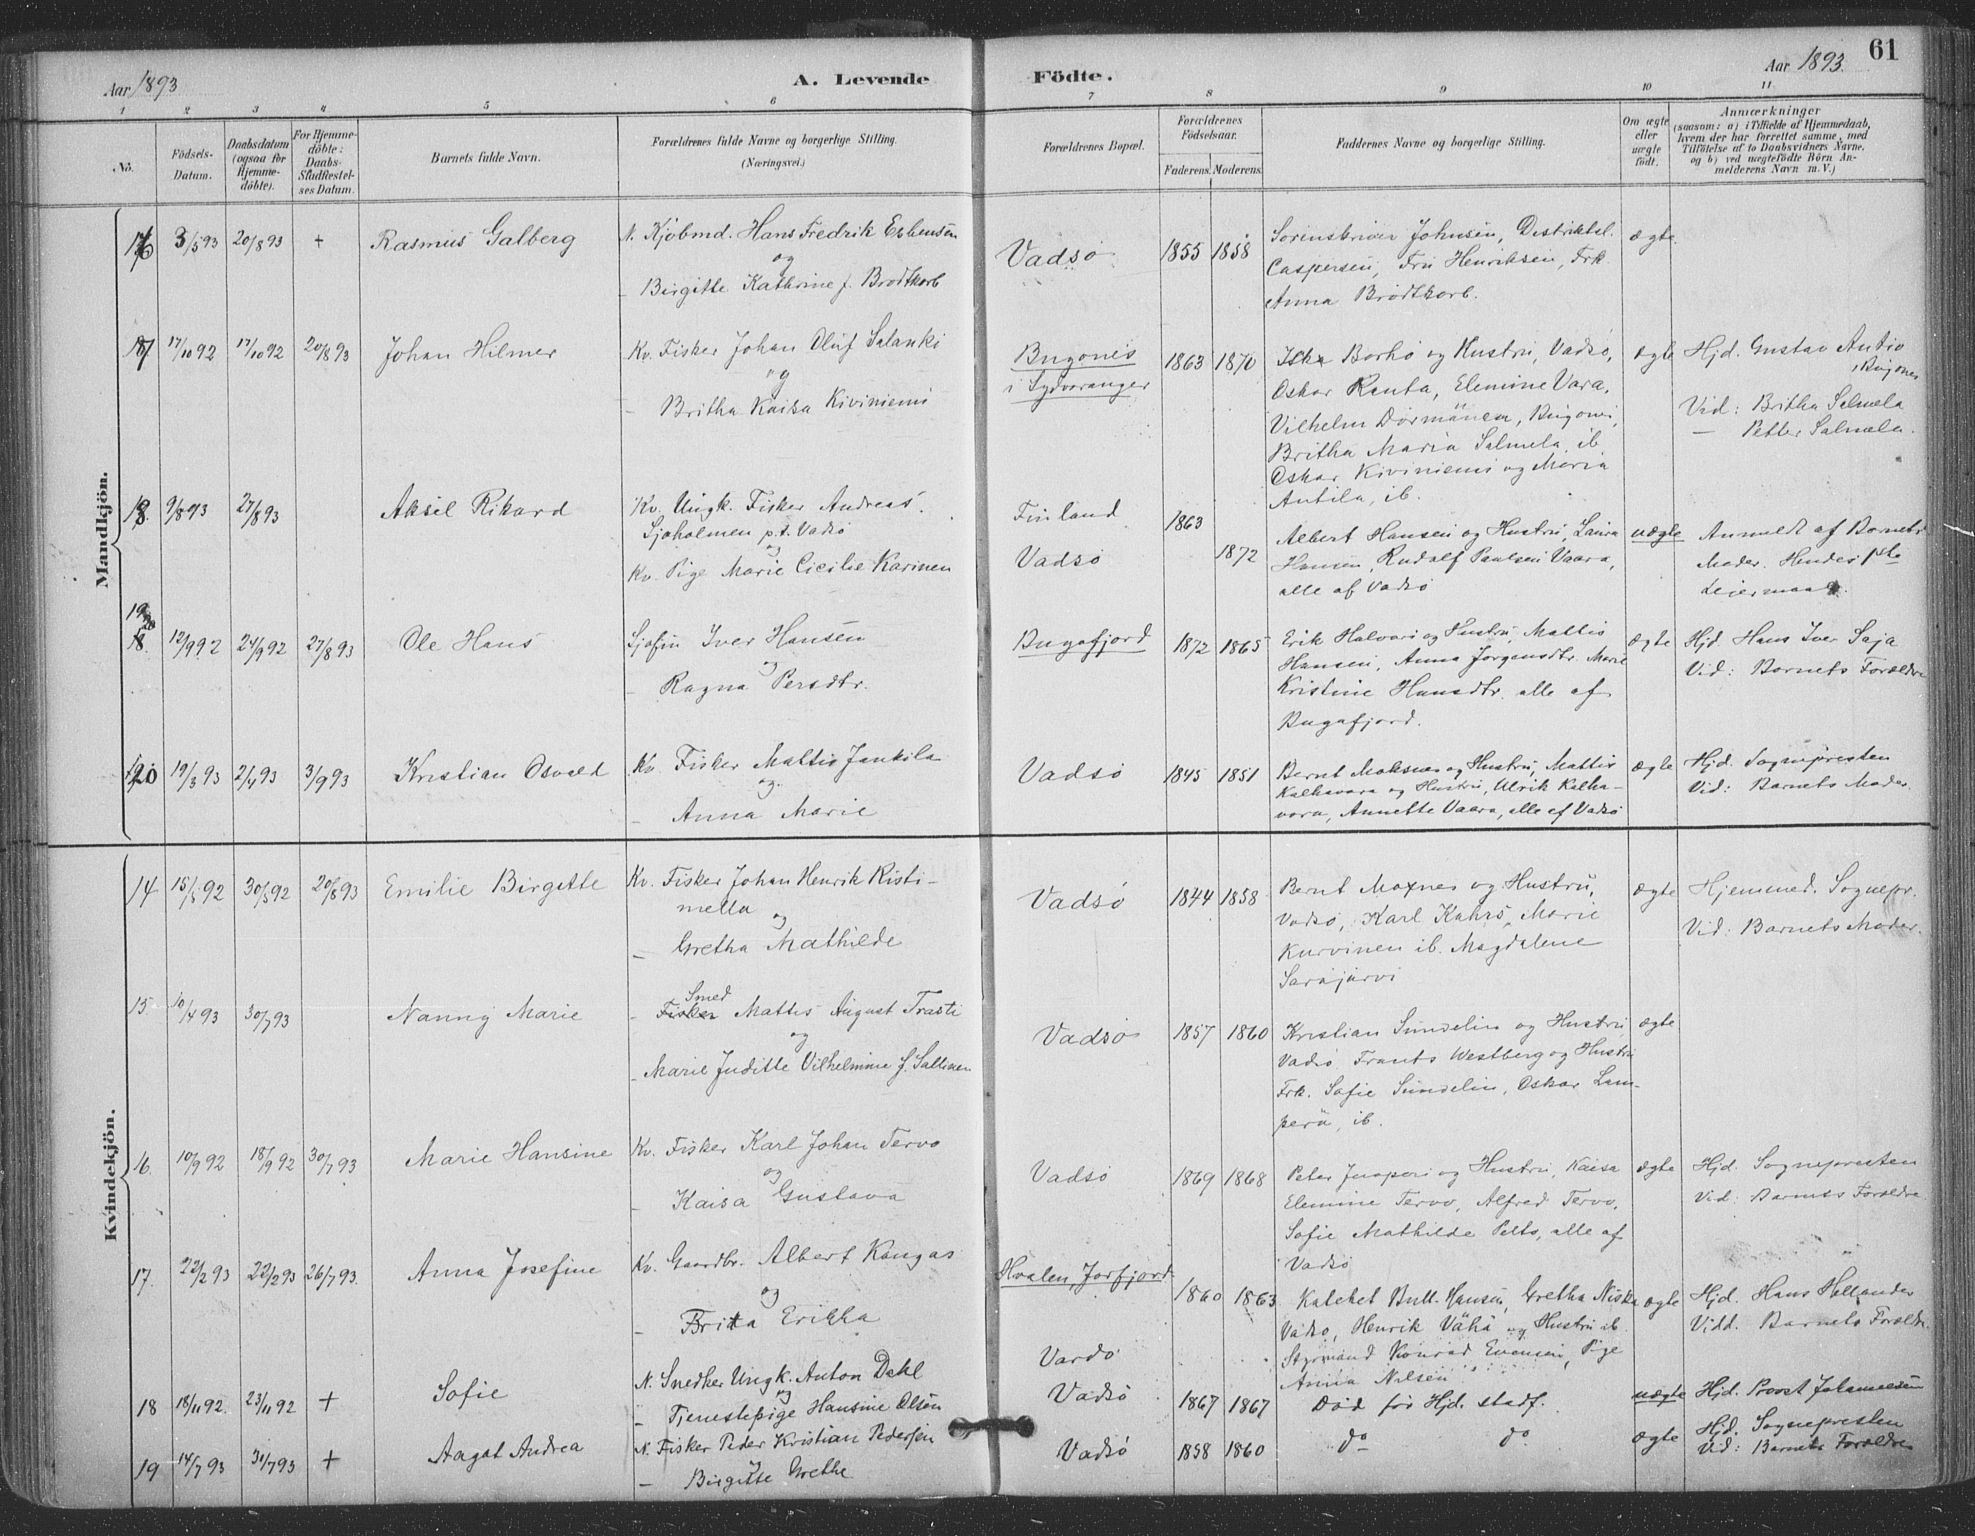 Aar 1893
A. Levende
Födte.
Aar 1893.
61
1 2 3 4 5 6 7 8 9 10 11
No.
Födsels-Datum.
Daabsdatum (ogsaa for Hjemme-döbte).
For Hjemme-döbte: Daabs-Stadfæstel-ses Datum.
Barnets fulde Navn.
Forældrenes fulde Navne og borgerlige Stilling.
(Næringsvei.)
Forældrenes Bopæl.
Forældrenes Födselsaar.
Faderens. Moderens.
Faddernes Navne og borgerlige Stilling.
Om ægte eller uægte födt.
Anmærkninger
(saasom: a) i Tilfælde af Hjemmedaab,
hvem der har forrettet samme, med
Tilföielse af to Daabsvidners Navne,
og b) ved uægtefödte Börn An-
melderens Navn m. V.)
Mandkjön.
16 3/5 93 20/8 93 + Rasmus Galberg N. Kjöbmd. Hans Fredrik Esbensen
og
— Birgitte Kathrine f. Brodtkorb
Vadsö 1855 1858 Sorenskriver Johnsen, Distriktsl.
Caspersen, Fru Henriksen, Frk.
Anna Brodtkorb.
ægte.
17 17/10 92 17/10 92 20/8 93 Johan Hilmer Kv. Fisker Johan Oluf Salanki
og
— Britha Kaisa Kiviniemi
Bugönes
i Sydvaranger
1863 1870 Isak Borhö og Hustru, Vadsö,
Oskar Ranta, Elemine Vara,
Vilhelm Dörmänen, Bugönes,
Britha Maria Salmela ib.
Oskar Kiviniemi og Maria
Antila, ib.
ægte Hjd. Gustav Antio
, Bugönes
Vid: Britha Salmela
— Petter Salmela.
18. 9/8 93 27/8 93 Aksel Rikard Kv. Ungk. Fisker Andreas
Sjöholmen p.t. Vadsö
og
Kv. Pige Marie Cicilie Karinen
Finland 1863
Vadsö 1872
Albert Hansen og Hustru, Laura
Hansen, Rudolf Paulsen Vaara,
alle af Vadsö
uægte Anmeldt af Barnets
Moder. Hendes 1ste
Leiermaal.
19 12/9 92 24/9 92 27/8 93 Ole Hans Sjöfin Iver Hansen
og
— Ragna Persdtr.
Bugöfjord 1872 1865 Erik Halvari og Hustru, Mattis
Hansen, Anna Jörgensdtr. Marie
Kristine Hansdtr. alle af
Bugöfjord.
ægte Hjd. Hans Iver Saja
Vid: Barnets Forældre
20 19/3 93 2/4 93 3/9 93 Kristian Osvald Kv. Fisker Mattis Jankila
og
— Anna Marie
Vadsö 1845 1851 Bernt Moksnes og Hustru, Mattis
Kalhavara og Hustru, Ulrik Kalha-
vara, Annette Vaara, alle af Vadsö
ægte Hjd. Sognepresten
Vid: Barnets Moder.
Kvindekjön.
14 15/5 92 30/5 92 20/8 93 Emilie Birgitte Kv. Fisker Johan Henrik Risti-
mella
og
— Gretha Mathilde
Vadsö 1844 1858 Bernt Moxnes og Hustru,
Vadsö, Karl Kahrs, Marie
Kurvinen ib. Magdalene
Sarajärvi
ægte Hjemmed. Sognepr.
Vid: Barnets Moder.
15. 10/4 93 30/7 93 Nanny Marie Smed
— Fisker Mattis August Trasti
og
— Marie Juditte Vilhelmine f. Sallinen
Vadsö 1857 1860 Kristian Sundelin og Hustru
Vadsö, Frants Westberg og Hustru
Frk. Sofie Sundelin, Oskar Lam-
perä, ib.
ægte
16. 10/9 92 18/9 92 30/7 93 Marie Hansine Kv. Fisker Karl Johan Tervo
og
— Kaisa Gustava
Vadsö 1869 1868 Peter Junperi og Hustru, Kaisa
Elemine Tervo, Alfred Tervo,
Sofie Mathilde Pelto, alle af
Vadsö
ægte Hjd. Sognepresten
Vid: Barnets Forældre
17. 22/2 93 22/2 93 26/7 93. Anna Josefine Kv. Gaardbr. Albert Kangas
og
— Britta Erikka
Hvalen, Jarfjord 1860 1863 Katehet Bull-Hansen, Gretha Niska
Vadsö, Henrik Vähä og Hustru ib.
Styrmand Konrad Evensen, Pige
Anna Nilsen
Vardö
ægte Hjd. Hans Hollander
Vidd. Barnets Forældre.
18 18/11 92. 23/11 92 + Sofie N. Snedker Ungk. Anton Dahl
og
— Tjenestepige Hansine Olsen
Vadsö 1867 1867 Död för Hjd. stadf. uægte Hjd. Provst Johannesen
19 14/7 93 31/7 93 + Aagot Andrea N. Fisker Peder Kristian Pedersen
og
— Birgitte Grethe
Vadsö 1858 1860 do do ægte Hjd. Sognepresten
Vid: Barnets Forældre